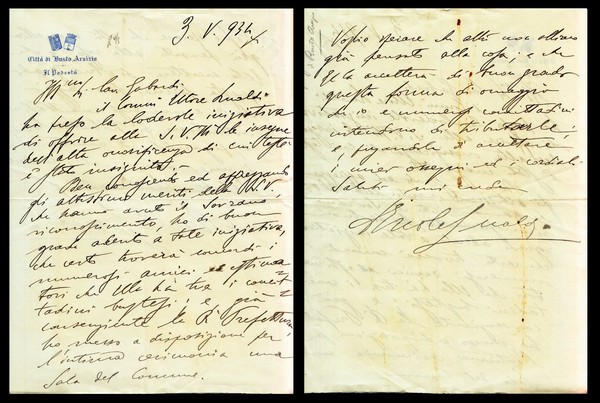 3. V. 934
Città di Busto Arsizio
Il Podestà
Ill.mo
il Comm. Ettore
ha preso la lodevole iniziativa
di offrire alla S.V. Ill. le insegne
dell'alta onorificenza di cui testé
è stato insignito.
Ben conoscente ed apprezzando
gli altissimi meriti della S.V.
che hanno avuto il Sovrano
riconoscimento, ho di buon
grado aderito a tale iniziativa,
che certo troverà concordi i
numerosi amici ed estima
tori che Ella ha tra i concit
tadini bustesi; e, già
consenziente la R. Prefettura,
ho messo a disposizione per
l'intima cerimonia una
Sala del Comune.
Voglio sperare che altri non abbiano
già pensato alla cosa, e che
Ella accetterà di buon grado
questa forma di omaggio
che io e numerosi concittadini
intendono di tributarle;
e, pregandola di accettare
i miei ossequi ed i cordiali
Saluti mi